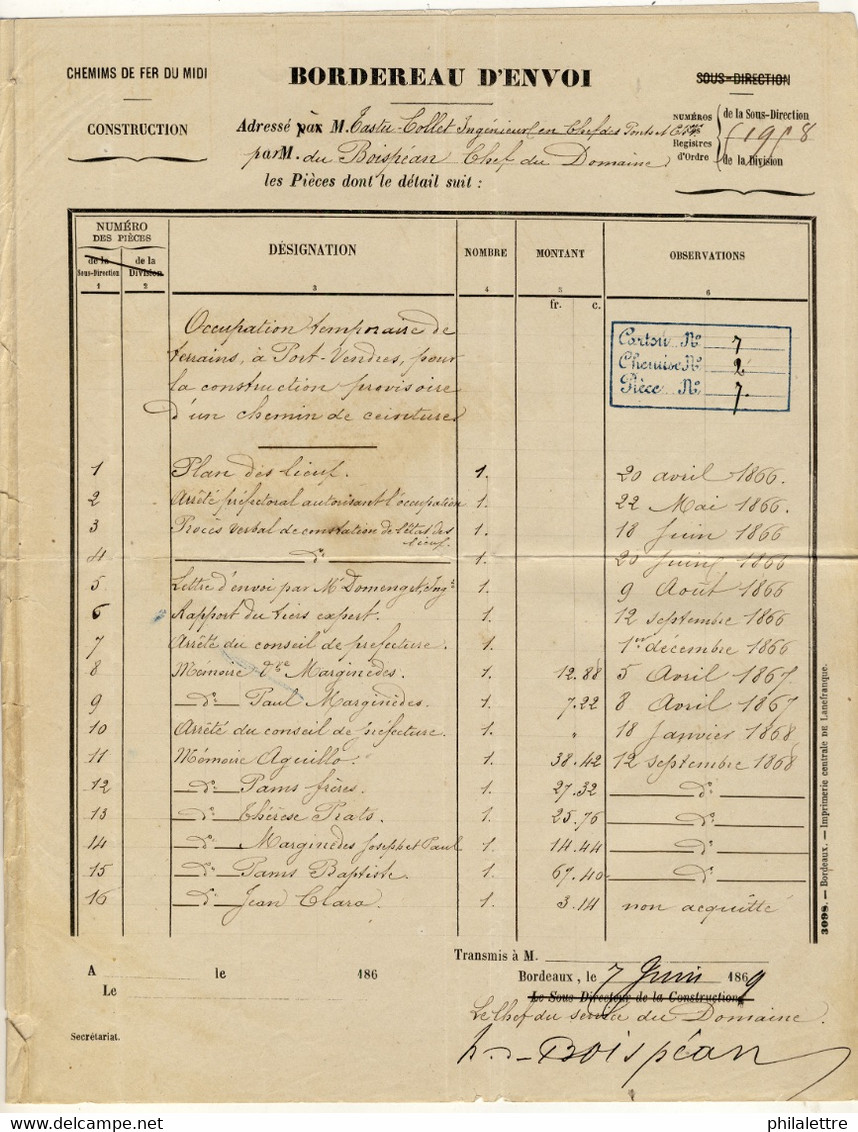 CHEMIMS DE FER DU MIDI
CONSTRUCTION
BORDEREAU D'ENVOI
SOUS-DIRECTION
Adressé par M. Tastu-Collet Ingénieur en Chef des Ponts et C.
par M. du Boispéan Chef du Domaine
les Pièces dont le détail suit :
NUMÉROS
Registres
d'Ordre
de la Sous-Direction
de la Division
NUMÉRO
DES PIÈCES
DÉSIGNATION
NOMBRE
MONTANT
OBSERVATIONS
de la
Sous-Direction
de la
Division
1 2 3 4 5 6
fr. c.
Occupation temporaire de
terrains, à Port-Vendres, pour
la construction provisoire
d'un chemin de ceinture
Carton No 7
Chemise No 2
Pièce No 7
1 Plan des lieux. 1. 20 avril 1866.
2 Arrêté préfectoral autorisant l'occupation 1. 22 Mai 1866.
3 Procès verbal de constation de l'état des
lieux. 1. 18 Juin 1866
4 d° 1. 20 Juin 1866
5 Lettre d'envoi par Mr Domenget, Ingr 1. 9 Août 1866
6 Rapport du tiers expert. 1. 12 septembre 1866
7 Arrêté du conseil de prefecture. 1. 1er décembre 1866
8 Mémoire Marginèdes. 1. 12.88 5 Avril 1867.
9 d° Paul Marginèdes. 1. 7.22 8 Avril 1867
10 Arrêté du conseil de préfecture. 1. " 18 Janvier 1868
11 Mémoire Aguillo. 1. 38.42 12 septembre 1868
12 d° Pams frères. 1. 27.32 d°
13 d° Thérèse Prats. 1. 25.76 d°
14 d° Marginèdes Joseph et Paul 1. 14.44 d°
15 d° Pams Baptiste 1. 67.40 d°
16 d° Jean Clara. 1. 3.14 non acquitté
3098. — Bordeaux. — Imprimerie centrale DE Lanefranque.
Transmis à M.
A le 186
Le
Bordeaux, le 7 Juin 1869
Le Sous-Directeur de la Construction
Le Chef du service du Domaine.
Boispéan
Secrétariat.
delcampe.net
philalettre